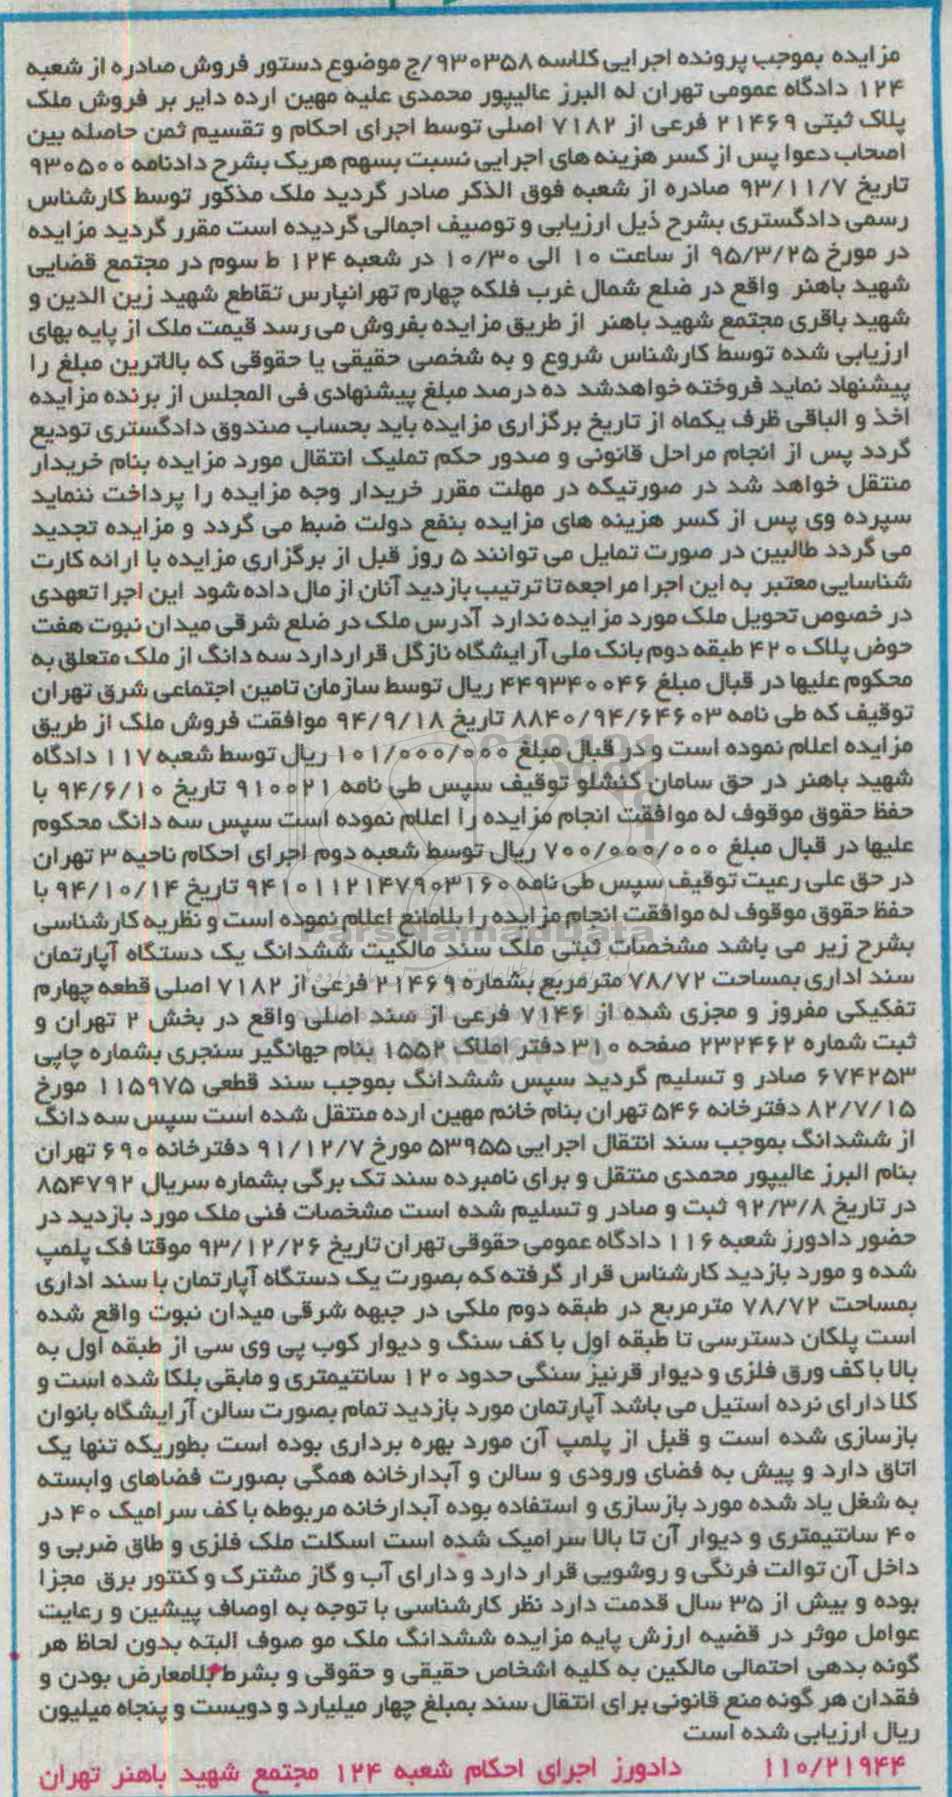 مزایده بموجب پرونده اجرایی کلاسه ۹۳۰۳۵۸/ج موضوع دستور فروش صادره از شعبه
۱۲۴ دادگاه عمومی تهران له البرز عالیپور محمدی علیه مهین ارده دایر بر فروش ملک
پلاک ثبتی ۲۱۴۶۹ فرعی از ۷۱۸۲ اصلی توسط اجرای احکام و تقسیم ثمن حاصله بین
اصحاب دعوا پس از کسر هزینه های اجرایی نسبت بسهم هریک بشرح دادنامه ۹۳۰۵۰۰
تاریخ ۹۳/۱۱/۷ صادره از شعبه فوق الذکر صادر گردید ملک مذکور توسط کارشناس
رسمی دادگستری بشرح ذیل ارزیابی و توصیف اجمالی گردیده است مقرر گردید مزایده
در مورخ ۹۵/۳/۲۵ از ساعت ۱۰ الی ۱۰/۳۰ در شعبه ۱۲۴ ط سوم در مجتمع قضایی
شهید باهنر واقع در ضلع شمال غرب فلکه چهارم تهرانپارس تقاطع شهید زین الدین و
شهید باقری مجتمع شهید باهنر از طریق مزایده بفروش می رسد قیمت ملک از پایه بهای
ارزیابی شده توسط کارشناس شروع و به شخصی حقیقی یا حقوقی که بالاترین مبلغ را
پیشنهاد نماید فروخته خواهدشد ده درصد مبلغ پیشنهادی فی المجلس از برنده مزایده
اخذ و الباقی ظرف یکماه از تاریخ برگزاری مزایده باید بحساب صندوق دادگستری تودیع
گردد پس از انجام مراحل قانونی و صدور حکم تملیک انتقال مورد مزایده بنام خریدار
منتقل خواهد شد در صورتیکه در مهلت مقرر خریدار وجه مزایده را پرداخت ننماید
سپرده وی پس از کسر هزینه های مزایده بنفع دولت ضبط می گردد و مزایده تجدید
می گردد طالبین در صورت تمایل می توانند ۵ روز قبل از برگزاری مزایده با ارائه کارت
شناسایی معتبر به این اجرا مراجعه تا ترتیب بازدید آنان از مال داده شود این اجرا تعهدی
در خصوص تحویل ملک مورد مزایده ندارد آدرس ملک در ضلع شرقی میدان نبوت هفت
حوض پلاک ۴۲۰ طبقه دوم بانک ملی آرایشگاه نازگل قراردارد سه دانگ از ملک متعلق به
محکوم علیها در قبال مبلغ ۴۴۹۳۴۰۰۴۶ ریال توسط سازمان تامین اجتماعی شرق تهران
توقیف که طی نامه ۸۸۴۰/۹۴/۶۴۶۰۳ تاریخ ۹۴/۹/۱۸ موافقت فروش ملک از طریق
مزایده اعلام نموده است و در قبال مبلغ ۱۰۱/۰۰۰/۰۰۰ ریال توسط شعبه ۱۱۷ دادگاه
شهید باهنر در حق سامان کنشلو توقیف سپس طی نامه ۹۱۰۰۲۱ تاریخ ۹۴/۶/۱۰ با
حفظ حقوق موقوف له موافقت انجام مزایده را اعلام نموده است سپس سه دانگ محکوم
علیها در قبال مبلغ ۷۰۰/۰۰۰/۰۰۰ ریال توسط شعبه دوم اجرای احکام ناحیه ۳ تهران
در حق علی رعیت توقیف سپس طی نامه ۹۴۱۰۱۱۲۱۴۷۹۰۳۱۶۰ تاریخ ۹۴/۱۰/۱۴ با
حفظ حقوق موقوف له موافقت انجام مزایده را بلامانع اعلام نموده است و نظریه کارشناسی
بشرح زیر می باشد مشخصات ثبتی ملک سند مالکیت ششدانگ یک دستگاه آپارتمان
سند اداری بمساحت ۷۸/۷۲ مترمربع بشماره ۲۱۴۶۹ فرعی از ۷۱۸۲ اصلی قطعه چهارم
تفکیکی مفروز و مجزی شده از ۷۱۴۶ فرعی از سند اصلی واقع در بخش ۲ تهران و
ثبت شماره ۲۳۲۴۶۲ صفحه ۳۱۰ دفتر املاک ۱۵۵۲ بنام جهانگیر سنجری بشماره چاپی
۶۷۴۲۵۳ صادر و تسلیم گردید سپس ششدانگ بموجب سند قطعی ۱۱۵۹۷۵ مورخ
۸۲/۷/۱۵ دفترخانه ۵۴۶ تهران بنام خانم مهین ارده منتقل شده است سپس سه دانگ
از ششدانگ بموجب سند انتقال اجرایی ۵۳۹۵۵ مورخ ۹۱/۱۲/۷ دفترخانه ۶۹۰ تهران
بنام البرز عالیپور محمدی منتقل و برای نامبرده سند تک برگی بشماره سریال ۸۵۴۷۹۲
در تاریخ ۹۲/۳/۸ ثبت و صادر و تسلیم شده است مشخصات فنی ملک مورد بازدید در
حضور دادورز شعبه ۱۱۶ دادگاه عمومی حقوقی تهران تاریخ ۹۳/۱۲/۲۶ موقتا فک پلمپ
شده و مورد بازدید کارشناس قرار گرفته که بصورت یک دستگاه آپارتمان با سند اداری
بمساحت ۷۸/۷۲ مترمربع در طبقه دوم ملکی در جبهه شرقی میدان نبوت واقع شده
است پلکان دسترسی تا طبقه اول با کف سنگ و دیوار کوب پی وی سی از طبقه اول به
بالا با کف ورق فلزی و دیوار قرنیز سنگی حدود ۱۲۰ سانتیمتری و مابقی بلکا شده است و
کلا دارای نرده استیل می باشد آپارتمان مورد بازدید تمام بصورت سالن آرایشگاه بانوان
بازسازی شده است و قبل از پلمپ آن مورد بهره برداری بوده است بطوریکه تنها یک
اتاق دارد و پیش به فضای ورودی و سالن و آبدارخانه همگی بصورت فضاهای وابسته
به شغل یاد شده مورد بازسازی و استفاده بوده آبدارخانه مربوطه با کف سرامیک ۴۰ در
۴۰ سانتیمتری و دیوار آن تا بالا سرامیک شده است اسکلت ملک فلزی و طاق ضربی و
داخل آن توالت فرنگی و روشویی قرار دارد و دارای آب و گاز مشترک و کنتور برق مجزا
بوده و بیش از ۳۵ سال قدمت دارد نظر کارشناسی با توجه به اوصاف پیشین و رعایت
عوامل موثر در قضیه ارزش پایه مزایده ششدانگ ملک مو صوف البته بدون لحاظ هر
گونه بدهی احتمالی مالکین به کلیه اشخاص حقیقی و حقوقی و بشرط بلامعارض بودن و
فقدان هر گونه منع قانونی برای انتقال سند بمبلغ چهار میلیارد و دویست و پنجاه میلیون
ریال ارزیابی شده است
۱۱۰/۲۱۹۴۴ دادورز اجرای احکام شعبه ۱۲۴ مجتمع شهید باهنر تهران
ParsNamadData